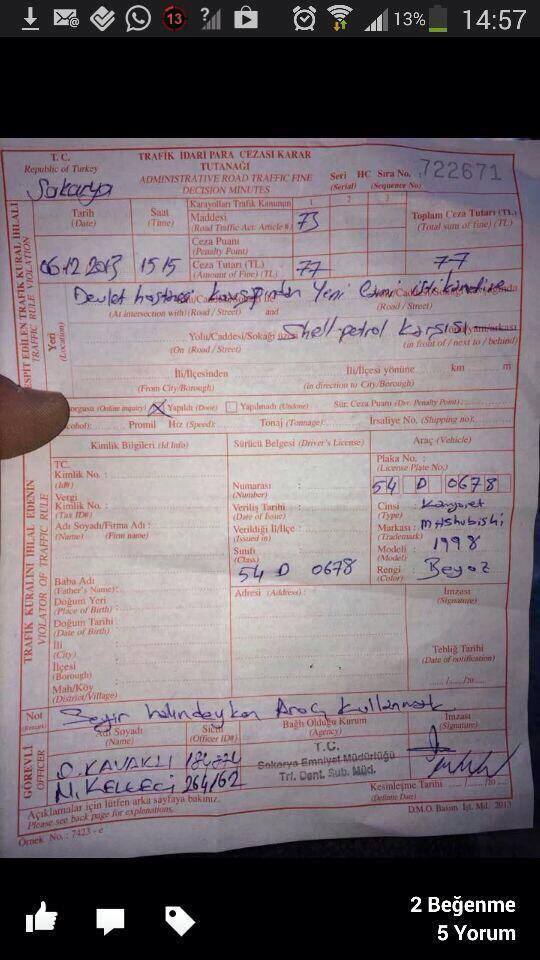 13
13%
14:57
T. C.
Republic of Turkey
TRAFİK İDARİ PARA CEZASI KARAR
TUTANAĞI
ADMINISTRATIVE ROAD TRAFFIC FINE
DECISION MINUTES
Seri HC Sıra No.
(Serial) (Sequence No)
722671
Sakarya
TESPİT EDİLEN TRAFİK KURAL İHLALİ
TRAFFIC RULE VIOLATION
Tarih
(Date)
Saat
(Time)
Karayolları Trafik Kanunun
Maddesi
(Road Traffic Act: Article #)
1
2
3
73
Toplam Ceza Tutarı (TL)
(Total sum of fine) (TL)
Ceza Puanı
(Penalty Point)
06.12.2013 1515
Ceza Tutarı (TL)
(Amount of Fine) (TL)
77
77
Yeri
(Location)
Devlet hastanesi kavşağından Yeni Cami
(At intersection with) (Road / Street) and
(Road / Street)
Yolu/Caddesi/Sokağı
(On (Road / Street)
Shell petrol karşısı
(in front of / next to / behind)
İli/İlçesinden
(From City/Borough)
İli/İlçesi yönüne
(in direction to City/Borough)
km
m
(Online inquiry) X Yapıldı (Done) Yapılmadı (Undone) Sür. Ceza Puanı (Drv. Penalty Point):
Promil Hız (Speed): Tonaj (Tonnage): İrsaliye No. (Shipping no):
TRAFİK KURALINI İHLAL EDENİN
VIOLATOR OF TRAFFIC RULE
Kimlik Bilgileri (Id Info)
Sürücü Belgesi (Driver's License)
Araç (Vehicle)
TC.
Kimlik No. :
(Id#)
Vergi
Kimlik No. :
(Tax ID#)
Adı Soyadı/Firma Adı :
(Name) (Firm name)
Baba Adı
(Father's Name) :
Doğum Yeri
(Place of Birth) :
Doğum Tarihi
(Date of Birth) :
İli
(City) :
İlçesi
(Borough) :
Mah/Köy
(District/Village) :
Numarası
(Number) :
Veriliş Tarihi
(Date of Issue) :
Verildiği İl/İlçe
(Issued in) :
Sınıfı
(Class) :
54 D 0678
Adresi (Address) :
Plaka No. :
(License Plate No.)
54 D 0678
Cinsi
(Type) :
Markası : Mitshubishi
(Trademark)
Modeli : 1998
(Model)
Rengi : Beyaz
(Color)
İmzası
(Signature)
Tebliğ Tarihi
(Date of notification)
Not
(Remark)
Seyir halindeyken Araç kullanmak
GÖREVLİ
OFFICER
Adı Soyadı
(Name)
Sicili
(Officer ID#)
Bağlı Olduğu Kurum
(Agency)
İmzası
(Signature)
O. KAVAKLI
N. KELLECİ 264162
T.C.
Sakarya Emniyet Müdürlüğü
Trf. Dent. Şub. Müd.
Kesinleşme Tarihi
(Definite Date)
Açıklamalar için lütfen arka sayfaya bakınız.
Please see back page for explenations.
D.M.O. Basım İşl. Md. 2013
Örnek No. : 7423 - e
2 Beğenme
5 Yorum